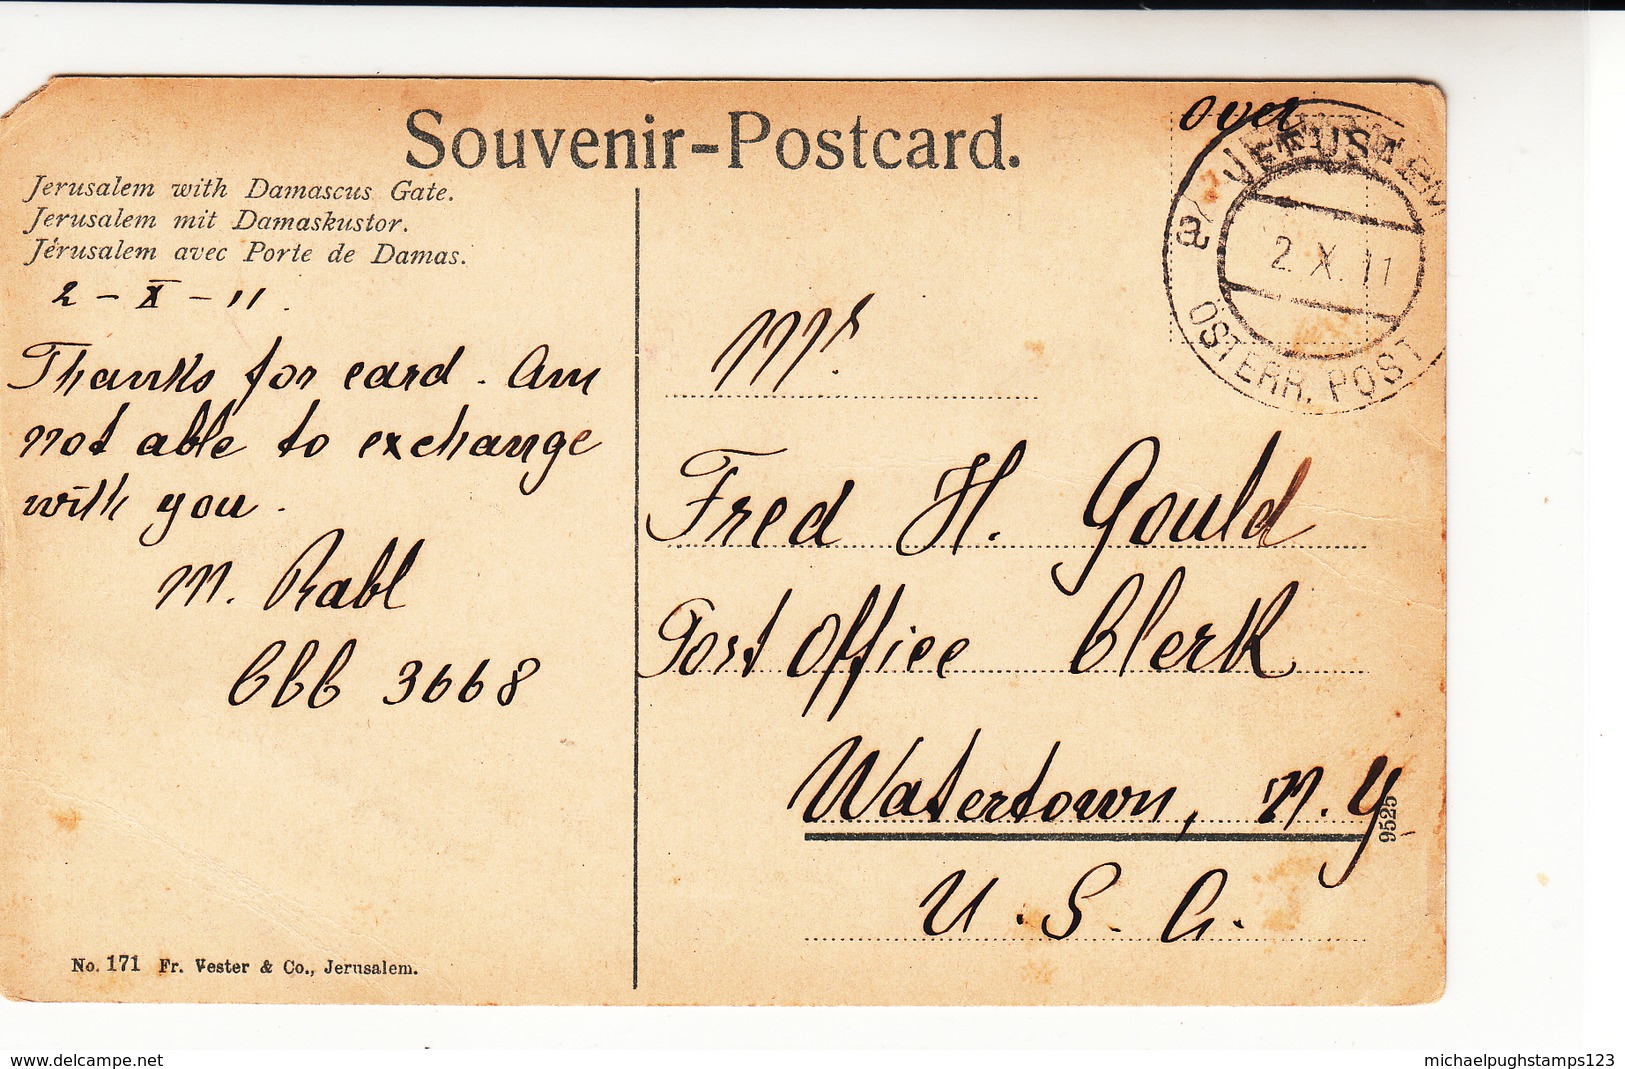 Souvenir-Postcard.
Jerusalem with Damascus Gate.
Jerusalem mit Damaskustor.
Jérusalem avec Porte de Damas.
2 - X - 11.
Thanks for card. Am
not able to exchange
with you.
M. Rabl
CCC 3668
No. 171 Fr. Vester & Co., Jerusalem.
over
JERUSALEM
a
2. X. 11
ÖSTERR. POST
Mr.
Fred H. Gould
Post Office Clerk
Watertown, N.Y
9525
U. S. A.
www.delcampe.net
michaelpughstamps123